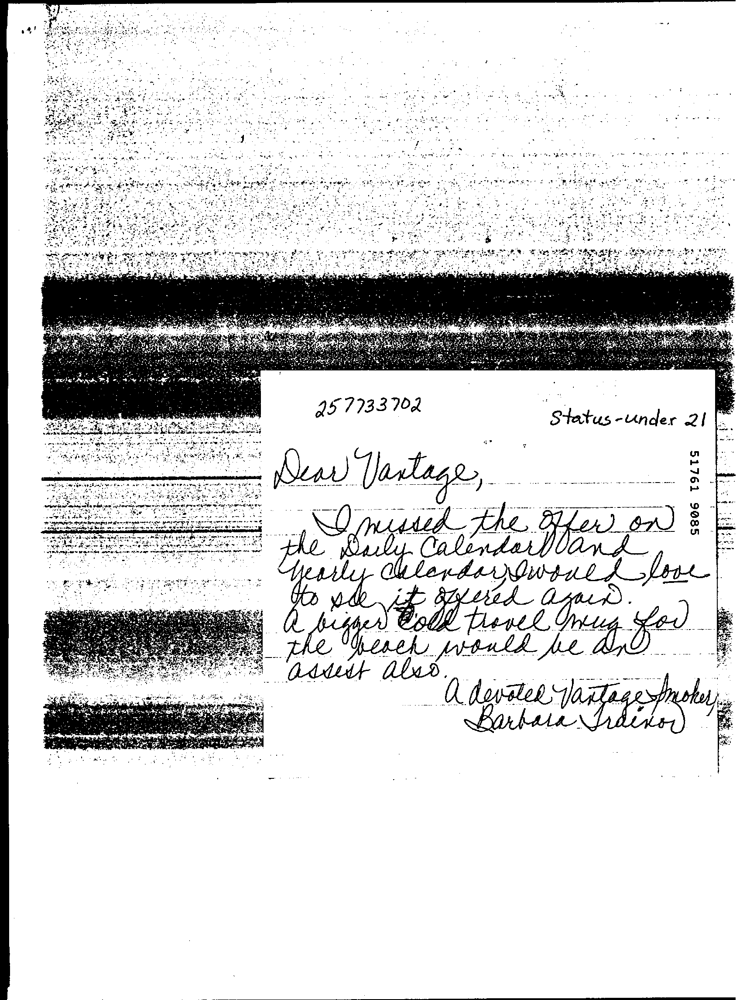 257733702
Status-under 21
51761 9085
Dear Vantage,
I missed the offer on
the Daily Calendar and
yearly calendar, I would love
to see it offered again.
A bigger Cold travel mug for
the beach would be an
assest also.
A devoted Vantage Smoker,
Barbara Trainor